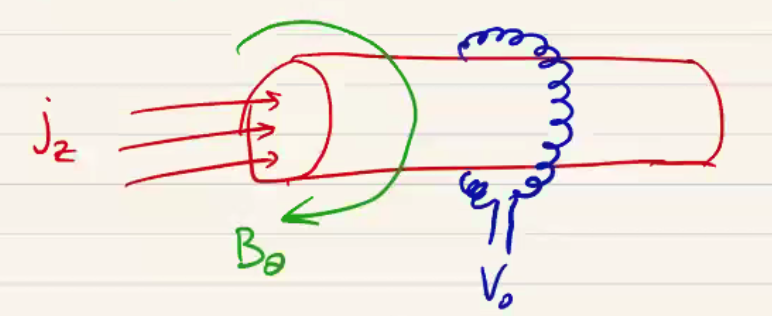 j_z
B_θ
V_o